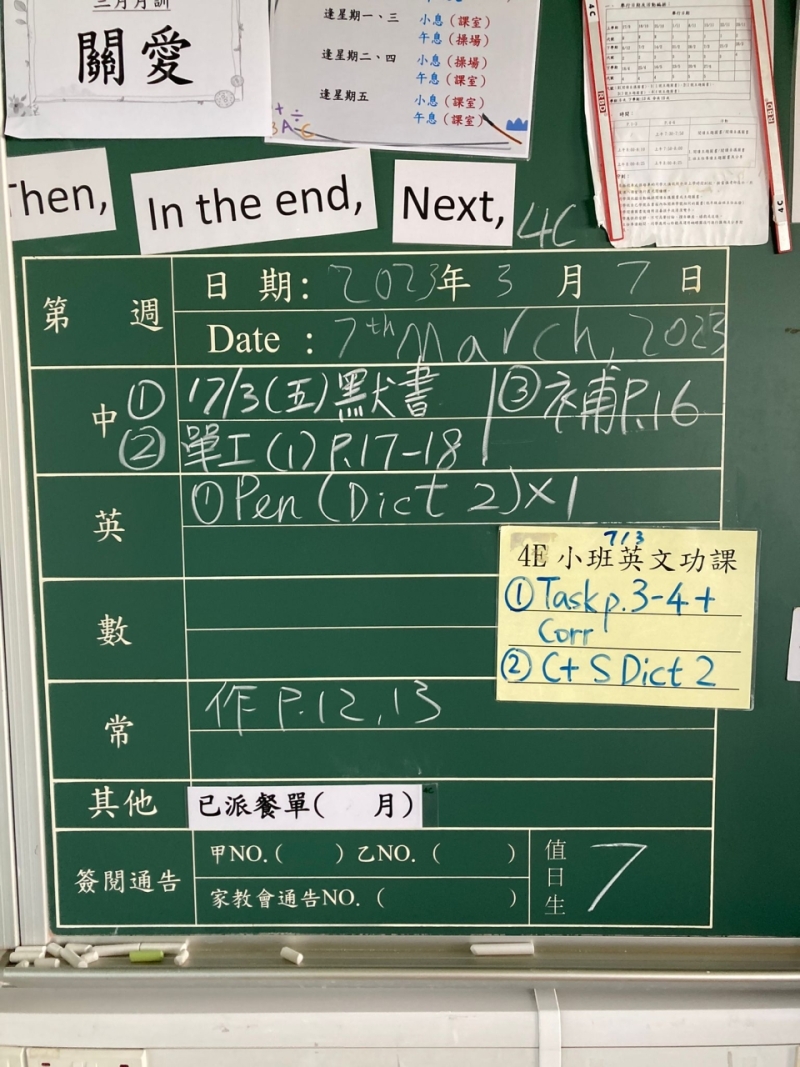 三月月訓
關愛
逢星期一、三
小息(課室)
午息(操場)
逢星期二、四
小息(操場)
午息(課室)
逢星期五
小息(課室)
午息(課室)
4C
4C
Then,
In the end,
Next,
4C
第 週
日 期: 2023年 3 月 7 日
Date : 7th March, 2023
中
① 17/3(五)默書
③ 補P.16
② 單工(1)P.17-18
英
①Pen (Dict 2)×1
7/3
4E 小班英文功課
①Task p.3-4+
Corr
② C+S Dict 2
數
常
作 P.12,13
其他
已派餐單( 月)
簽閱通告
甲NO.( ) 乙NO. ( )
家教會通告NO. ( )
值日生
7